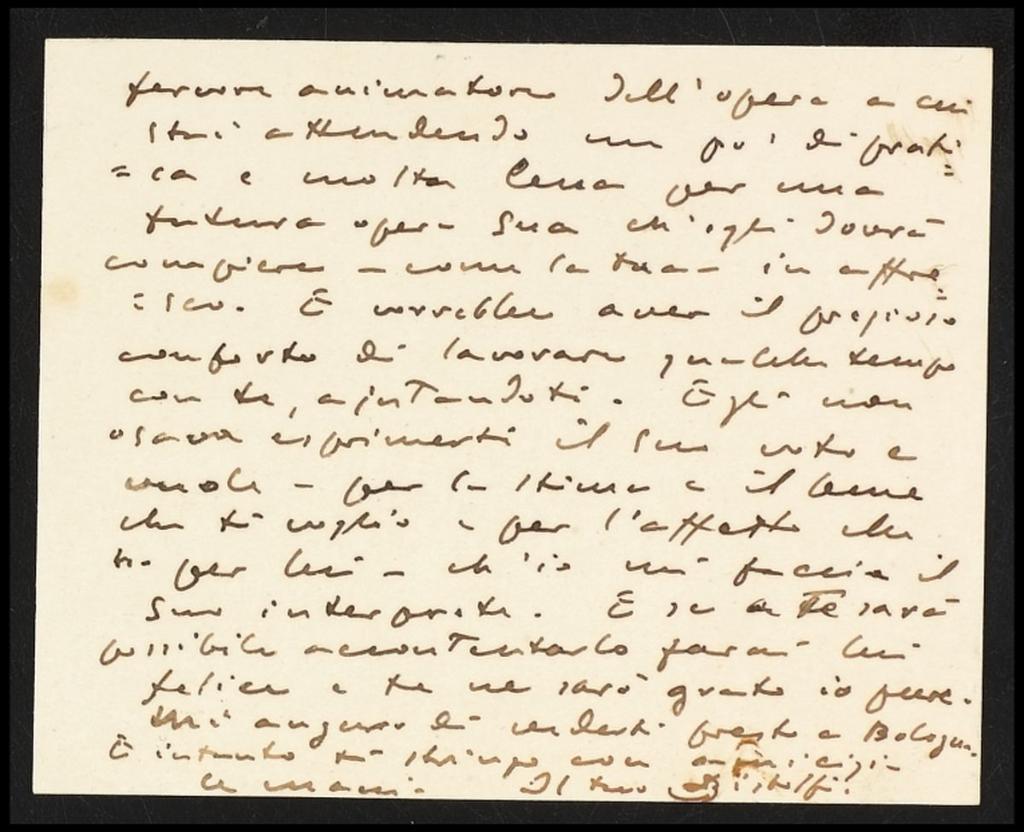 fervore animatore dell'opera a cui
stai attendendo un po' di prati
=ca e molta lena per una
futura opera sua ch'egli dovrà
compiere - come la tua - in affre=
=sco. E vorrebbe aver il prezioso
conforto di lavorare qualche tempo
con te, ajutandoti. Egli non
osava esprimerti il suo voto e
vuole - per la stima e il bene
che ti voglio e per l'affetto che
ho per lui - ch'io mi faccia il
suo interprete. E se a te sarà
possibile accontentarlo farai lui
felice e te ne sarò grato io pure.
Mi auguro di vederti presto a Bologna.
E intanto ti stringo con amicizia
le mani. Il tuo Bistolfi.